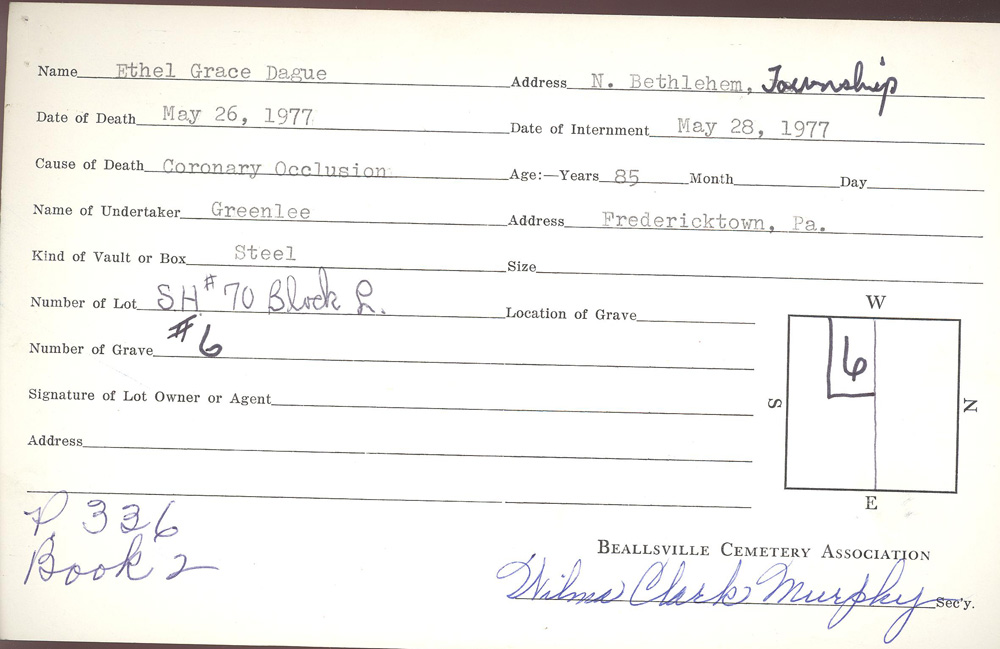 Name Ethel Grace Dague Address N. Bethlehem, Township
Date of Death May 26, 1977 Date of Internment May 28, 1977
Cause of Death Coronary Occlusion Age:—Years 85 Month Day
Name of Undertaker Greenlee Address Fredericktown, Pa.
Kind of Vault or Box Steel Size
Number of Lot SH #70 Block L. Location of Grave
Number of Grave #6
Signature of Lot Owner or Agent
Address
W
6
S
N
E
P. 336
Book 2
BEALLSVILLE CEMETERY ASSOCIATION
Wilma Clark Murphy Sec'y.